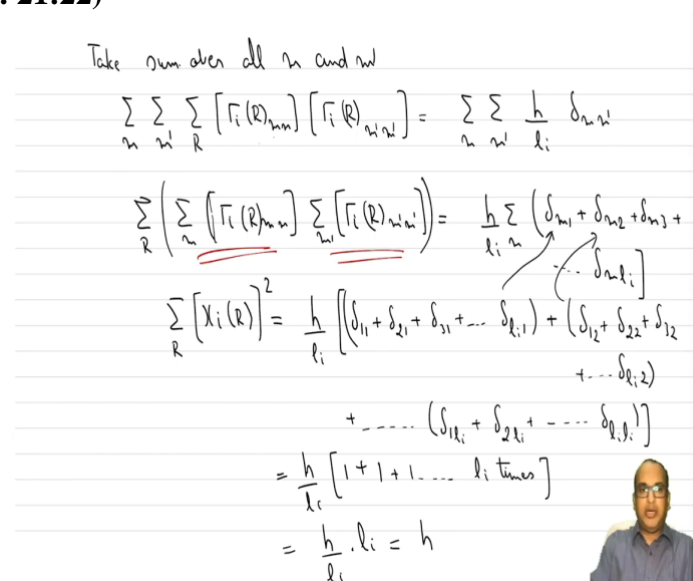 : 21:22)
Take sum over all n and n'
Σ_n Σ_n' Σ_R [Γi(R)nn] [Γi(R)n'n'] = Σ_n Σ_n' h/li δnn'
Σ_R (Σ_n [Γi(R)nn] Σ_n' [Γi(R)n'n']) = h/li Σ_n (δn1 + δn2 + δn3 +
.... δnli]
Σ_R [Χi(R)]² = h/li [(δ11 + δ21 + δ31 + .... δli1) + (δ12 + δ22 + δ32
+ .... δli2)
+ ...... (δ1li + δ2li + ..... δlili)]
= h/li [1 + 1 + 1 .... li times]
= h/li . li = h